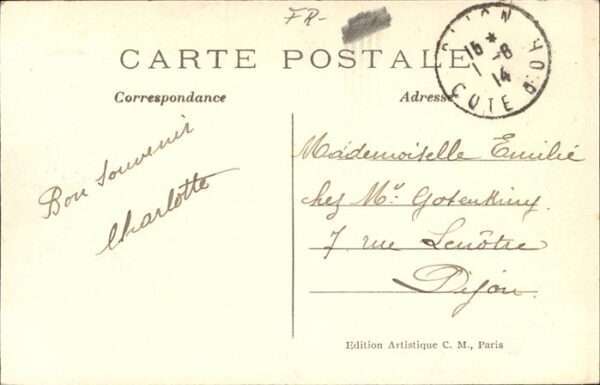 FR-
CARTE POSTALE
DIJON
15 *
1 -8
14
COTE D'OR
Correspondance
Adresse
Bon Souvenir
Charlotte
Mademoiselle Emilie
chez Mr
7 rue Lenôtre
Dijon.
Edition Artistique C. M., Paris